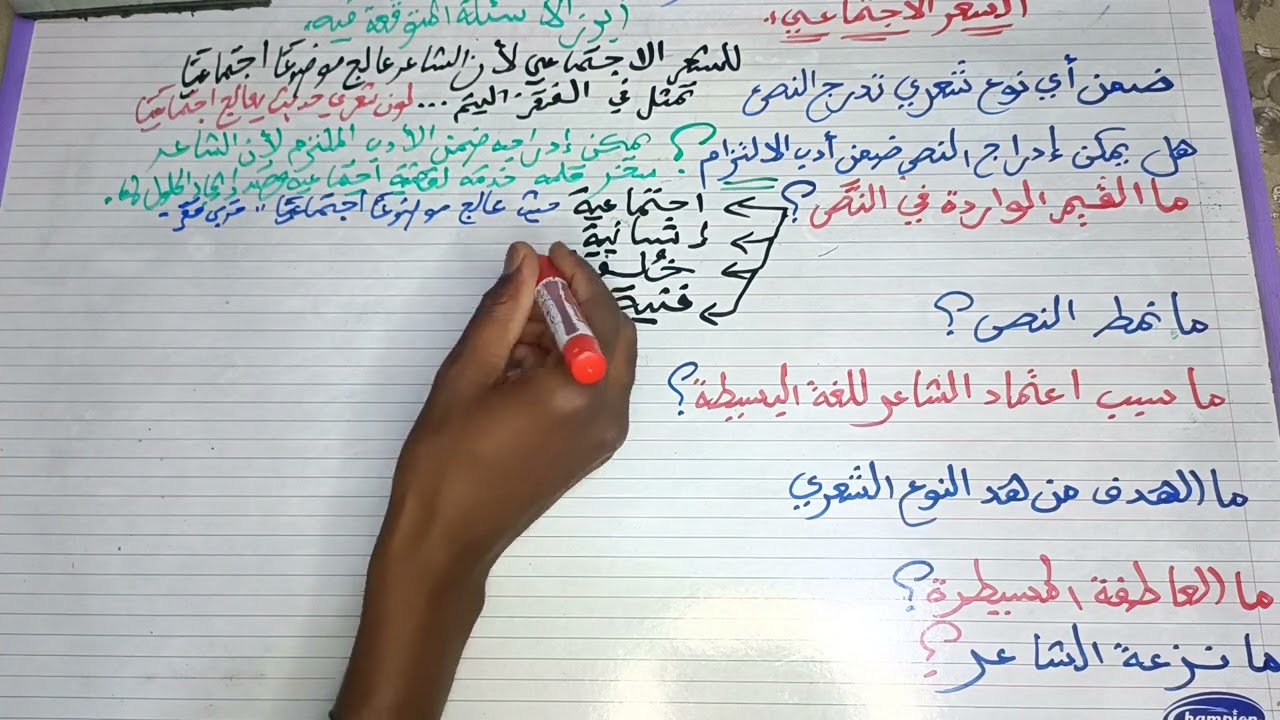 الشعر الاجتماعي.
أبرز الأسئلة المتوقعة فيه.
ضمن أي نوع شعري تدرج النص؟
للشعر الاجتماعي لأن الشاعر عالج موضوعًا اجتماعيًا
تمثل في الفقر، اليتم ... لون شعري حديث يعالج اجتماعيًا
هل يمكن إدراج النص ضمن أدب الالتزام؟
يمكن إدراجه ضمن الأدب الملتزم لأن الشاعر
سخر قلمه خدمة لقضية اجتماعية إيجاد الحلول لها.
ما القيم الواردة في النص؟
اجتماعية حيث عالج موضوعًا اجتماعيًا
إنسانية
خلقـ
فنية
ما نمط النص؟
ما سبب اعتماد الشاعر للغة البسيطة؟
ما الهدف من هد النوع الشعري
ما العاطفة المسيطرة؟
ما نزعة الشاعر؟
Champion